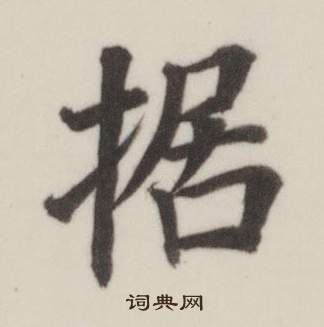 据
词典网